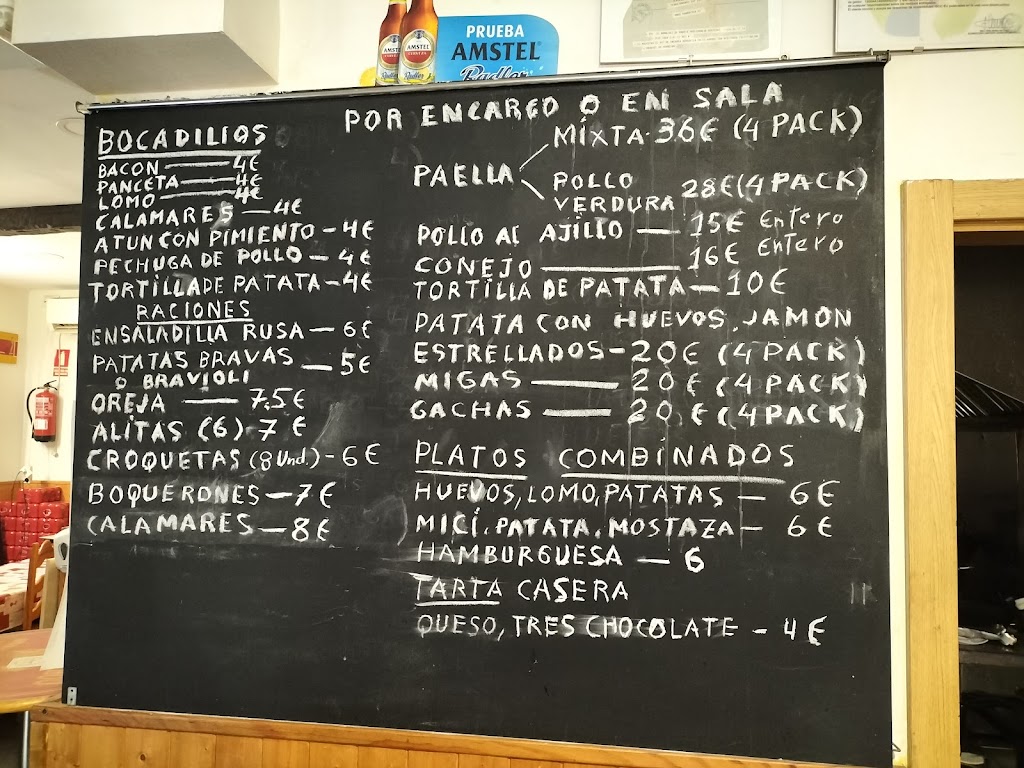 PRUEBA
AMSTEL
Radler
AMSTEL
AMSTEL
POR ENCARGO O EN SALA
BOCADILLOS
BACON — 4€
PANCETA — 4€
LOMO — 4€
CALAMARES — 4€
ATUN CON PIMIENTO — 4€
PECHUGA DE POLLO — 4€
TORTILLA DE PATATA — 4€
RACIONES
ENSALADILLA RUSA — 6€
PATATAS BRAVAS — 5€
O BRAVIOLI
OREJA — 7,5€
ALITAS (6) - 7€
CROQUETAS (8 Und.) - 6€
BOQUERONES — 7€
CALAMARES — 8€
MIXTA - 36€ (4 PACK)
PAELLA
POLLO
VERDURA 28€ (4 PACK)
POLLO AL AJILLO — 15€ Entero
CONEJO — 16€ Entero
TORTILLA DE PATATA — 10€
PATATA CON HUEVOS, JAMÓN
ESTRELLADOS - 20€ (4 PACK)
MIGAS — 20€ (4 PACK)
GACHAS — 20€ (4 PACK)
PLATOS COMBINADOS
HUEVOS, LOMO, PATATAS — 6€
MICI, PATATA, MOSTAZA — 6€
HAMBURGUESA — 6
TARTA CASERA
QUESO, TRES CHOCOLATE - 4€